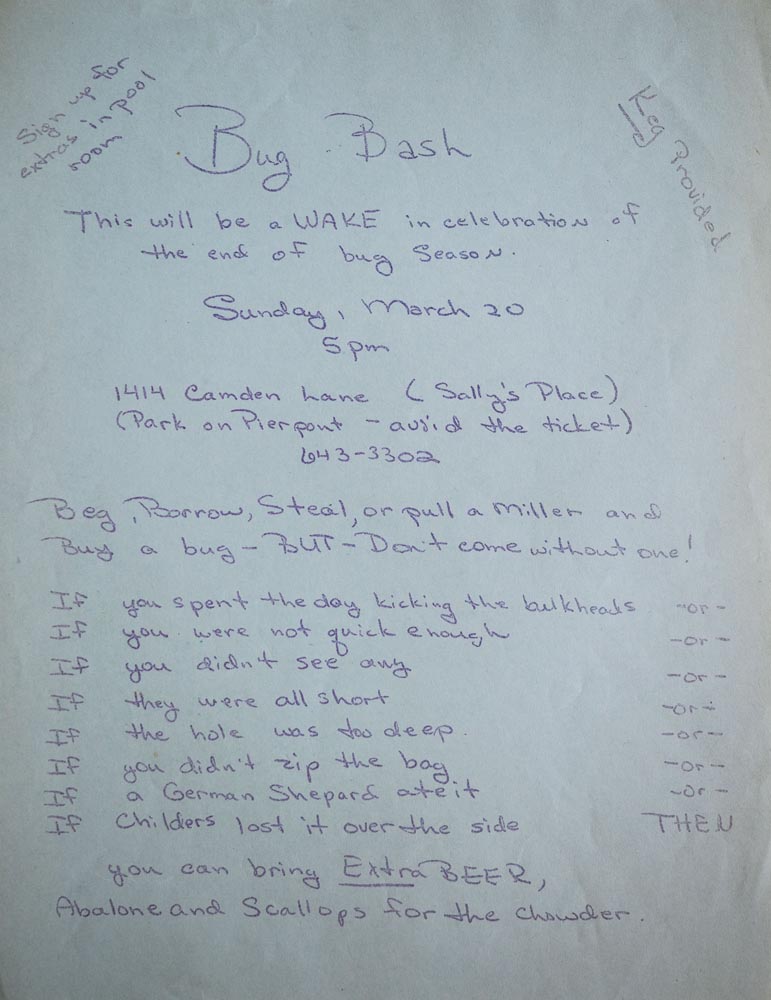 Sign up for
extras in pool
room
Keg Provided
Bug Bash
This will be a WAKE in celebration of
the end of bug Season.
Sunday, March 20
5 pm
1414 Camden Lane (Sally's Place)
(Park on Pierpont - avoid the ticket)
643-3302
Beg, Borrow, Steal, or pull a Miller and
Buy a bug - BUT - Don't come without one!
If you spent the day kicking the bulkheads -or-
If you were not quick enough -or-
If you didn't see any -or-
If they were all short -or-
If the hole was too deep. -or-
If you didn't zip the bag -or-
If a German Shepard ate it -or-
If Childers lost it over the side THEN
you can bring Extra BEER,
Abalone and Scallops for the chowder.